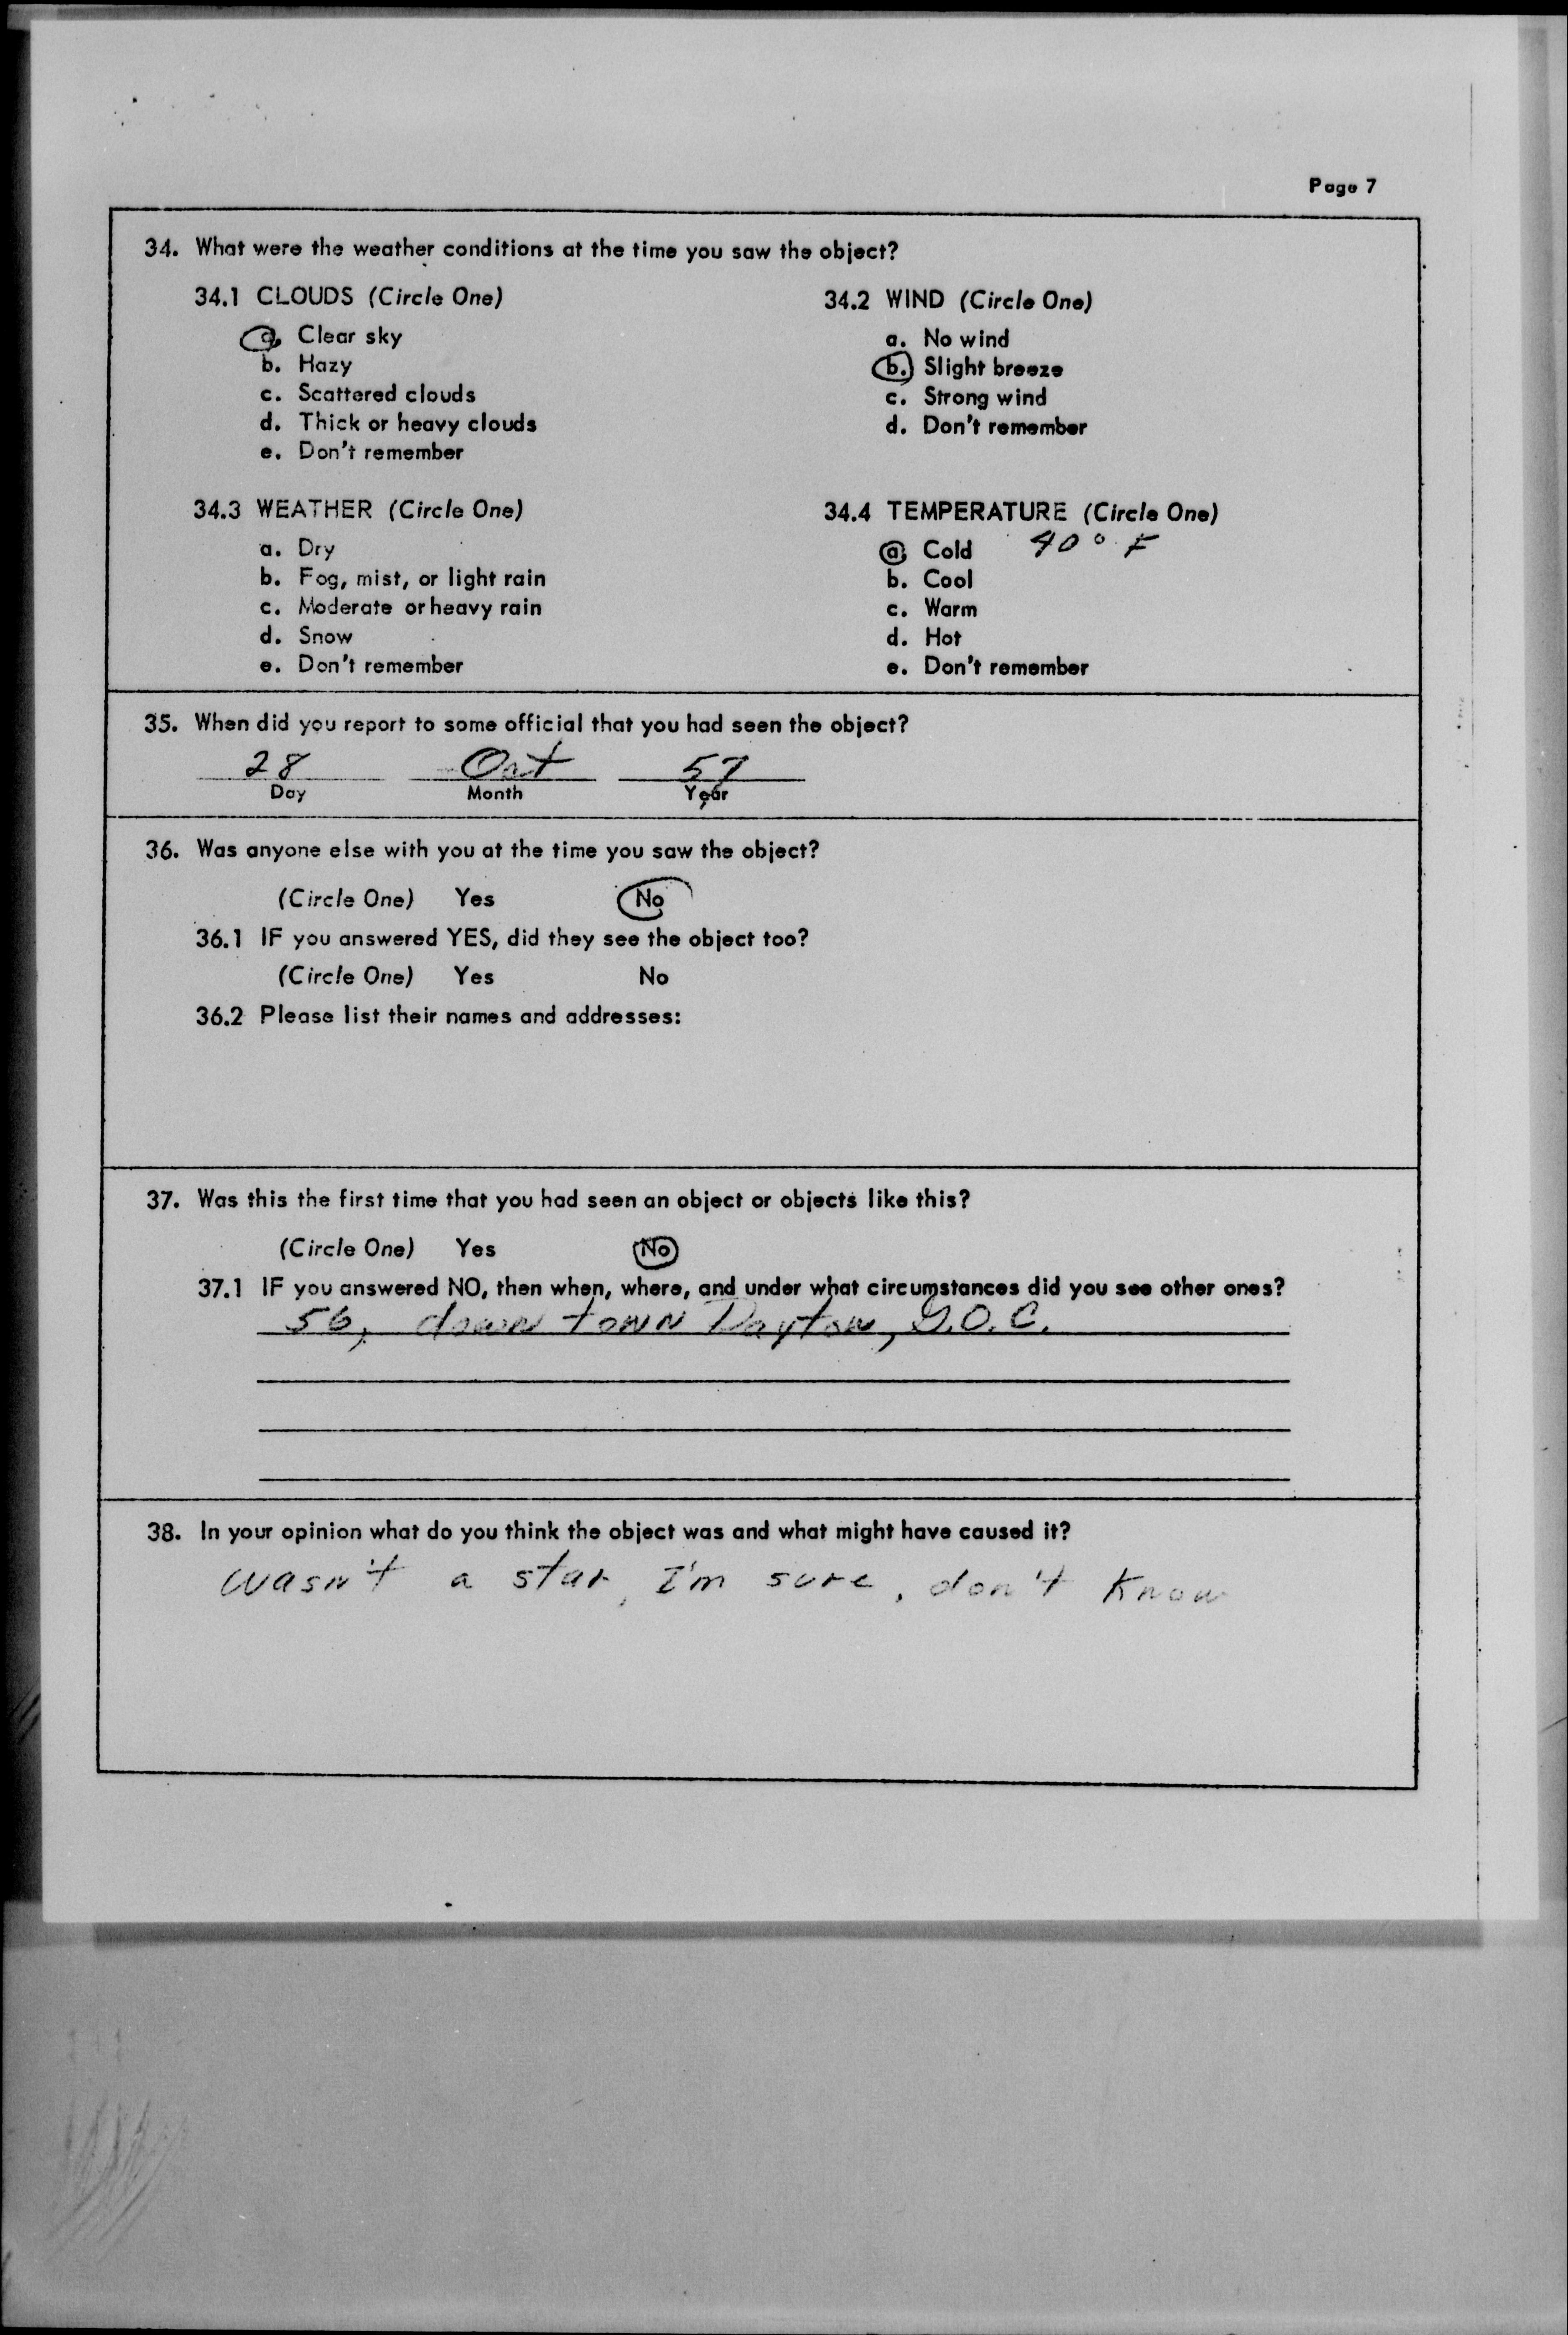 Page 7
34. What were the weather conditions at the time you saw the object?
34.1 CLOUDS (Circle One)
a. Clear sky
b. Hazy
c. Scattered clouds
d. Thick or heavy clouds
e. Don't remember
34.2 WIND (Circle One)
a. No wind
b. Slight breeze
c. Strong wind
d. Don't remember
34.3 WEATHER (Circle One)
a. Dry
b. Fog, mist, or light rain
c. Moderate or heavy rain
d. Snow
e. Don't remember
34.4 TEMPERATURE (Circle One)
a. Cold 40° F
b. Cool
c. Warm
d. Hot
e. Don't remember
35. When did you report to some official that you had seen the object?
28 Oct 57
Day Month Year
36. Was anyone else with you at the time you saw the object?
(Circle One) Yes No
36.1 IF you answered YES, did they see the object too?
(Circle One) Yes No
36.2 Please list their names and addresses:
37. Was this the first time that you had seen an object or objects like this?
(Circle One) Yes No
37.1 IF you answered NO, then when, where, and under what circumstances did you see other ones?
56, down town Dayton, G.O.C.
38. In your opinion what do you think the object was and what might have caused it?
wasn't a star, I'm sure, don't know